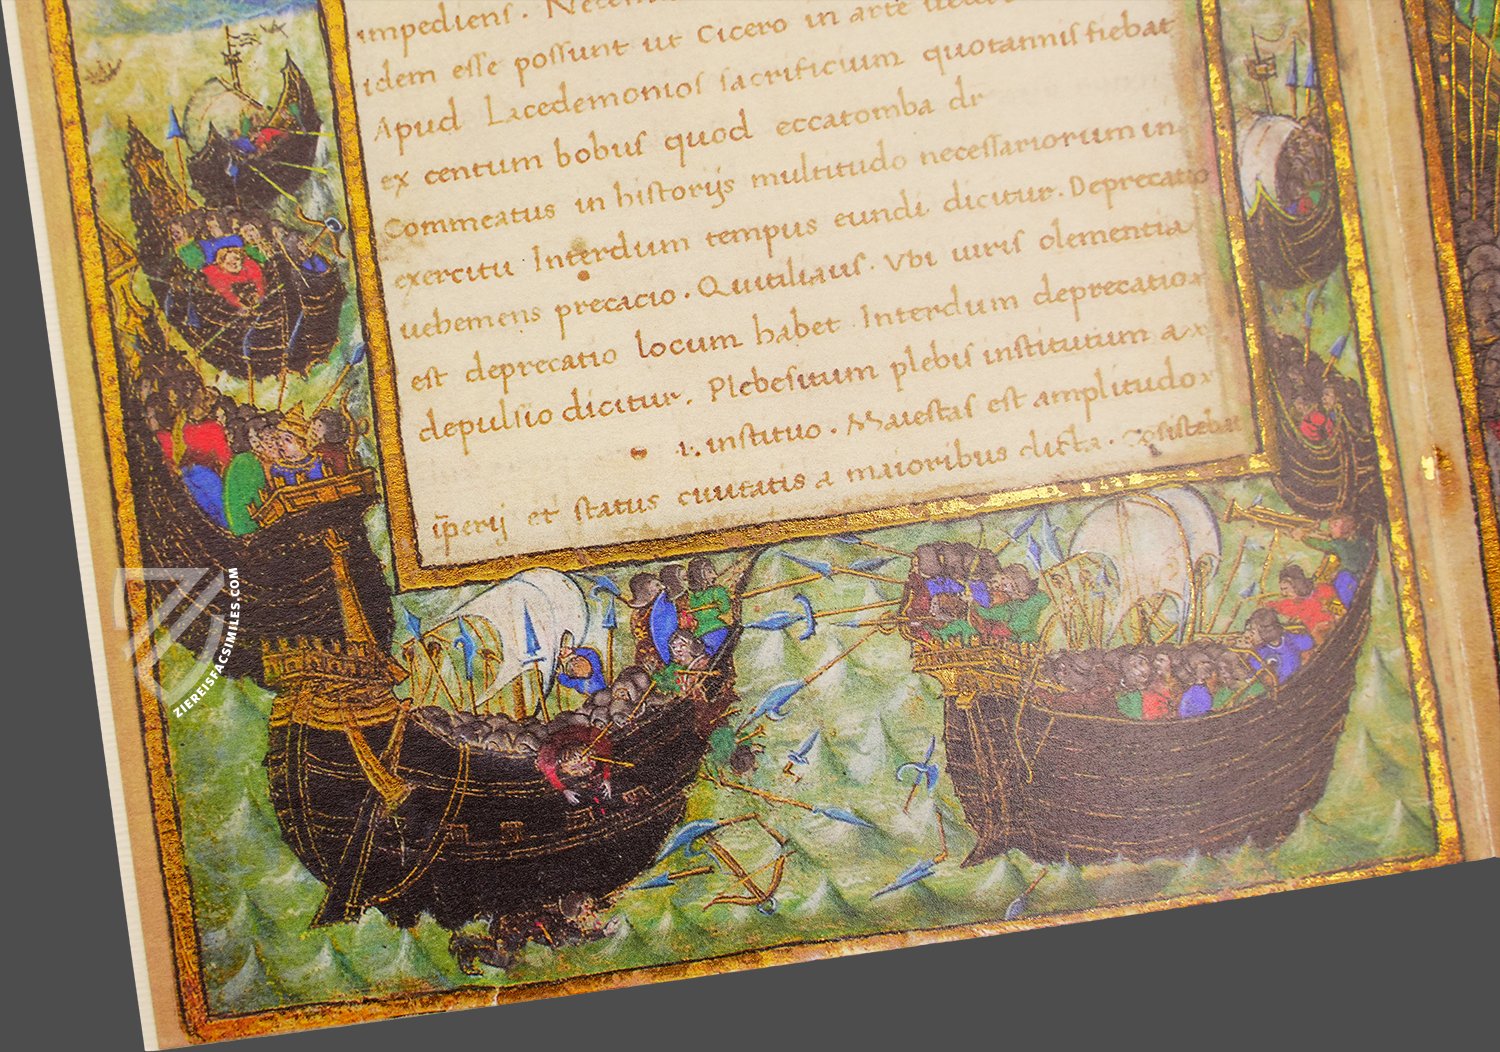 impediens.
idem esse possunt ut Cicero in arte
Apud Lacedemonios sacrificium quotannis fiebat
ex centum bobus quod eccatomba dr
Commeatus in historijs multitudo necessariorum in
exercitu Interdum tempus eundi dicitur. Deprecatio
uehemens precacio. Quitilianus. Vbi iuris clementia
est deprecatio locum habet. Interdum deprecatio
depulsio dicitur. Plebesitum plebis institutum a
instituo. Maiestas est amplitudo
īperij et status ciuitatis a maioribus dicta.
ZIEREISFACSIMILES.COM